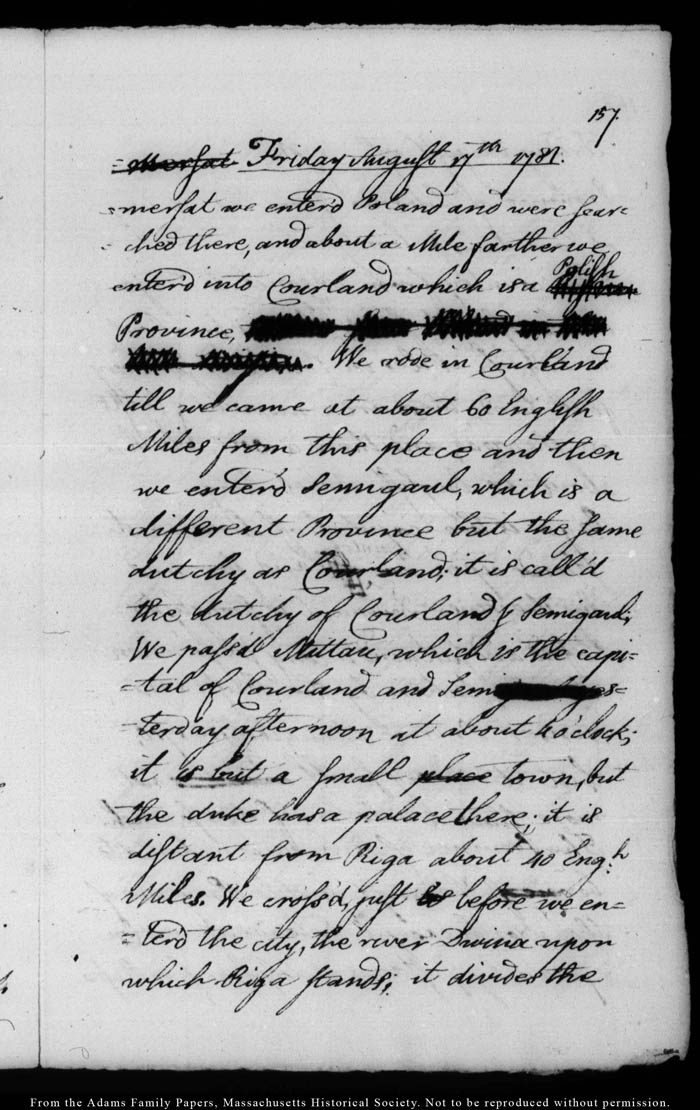 157.
=mersat Friday August 17th 1781.
=mersat we enter'd Poland and were sear=
=ched there, and about a Mile farther we
Polish
enter'd into Courland which is a
Province,
We rode in Courland
till we came at about 60 English
Miles from this place and then
we enter'd Semigaul, which is a
different Province but the same
dutchy as Courland; it is call'd
the dutchy of Courland & Semigaul;
We pass'd Mittau, which is the capi=
=tal of Courland and Semi yes=
=terday afternoon at about 4 o'clock;
it is but a small place town, but
the duke has a palace there; it is
distant from Riga about 40 Engh.
Miles. We cross'd, just before we en=
=terd the city, the river Dwina upon
which Riga stands; it divides the
From the Adams Family Papers, Massachusetts Historical Society. Not to be reproduced without permission.